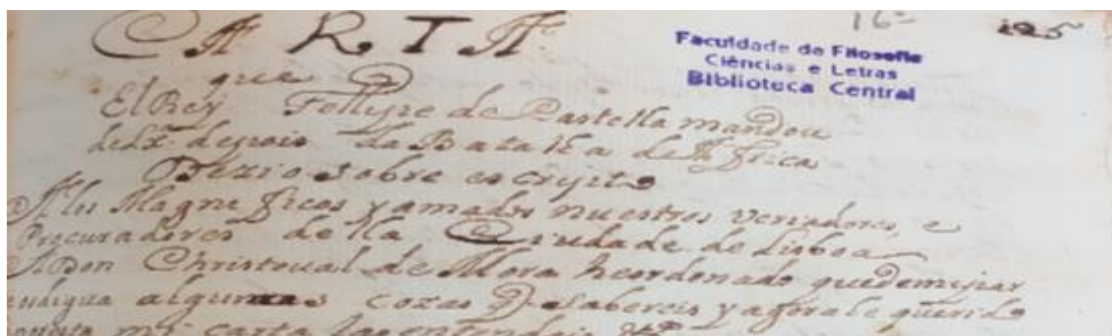 CARTA
16
125
Faculdade de Filosofia
Ciências e Letras
Biblioteca Central
que
El Rey Fellype de Castella mandou
depois da Batalha de Affrica
Dezia o sobre escryito
A los Magneficos y amados nuestros veriadores, e
Procuradores de lla Ciudade de Lisboa
A Don Christoual de Mora he ordenado que de mi par
algumas cozas q sabereis y agora le querido
mi carta las entendais